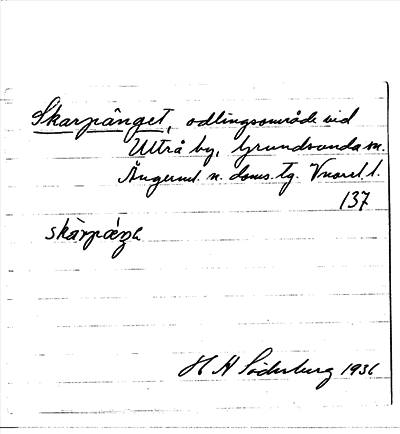 Skarpänget, odlingsområde vid
Ultrå by, Grundsunda sn.
Ångerml. n. doms. tg.
137
skàrpǽŋɛ
H A Söderberg 1936